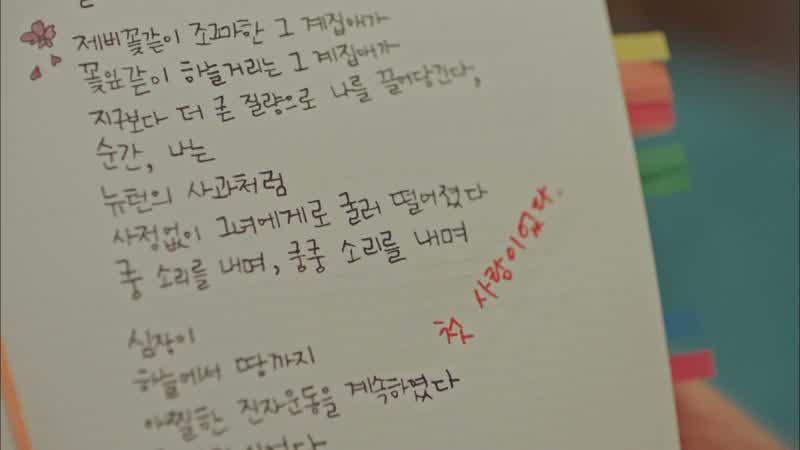 제비꽃같이 조그마한 그 계집애가
꽃잎같이 하늘거리는 그 계집애가
지구보다 더 큰 질량으로 나를 끌어당긴다,
순간, 나는
뉴턴의 사과처럼
사정없이 그녀에게로 굴러 떨어졌다
쿵 소리를 내며, 쿵쿵 소리를 내며
심장이
하늘에서 땅까지
아찔한 진자운동을 계속하였다
첫 사랑이었다.